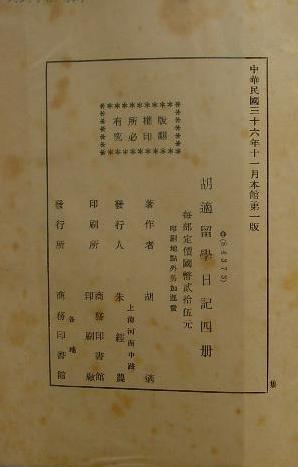 中華民國三十六年十一月本館第一版
胡適留學日記四册
(54373)
每部定價國幣貳拾伍元
印刷地點外另加運費
版權所有
翻印必究
著作者 胡適
發行人 朱經農
上海河南中路
印刷所 商務印書館
印刷廠
各地
發行所 商務印書館